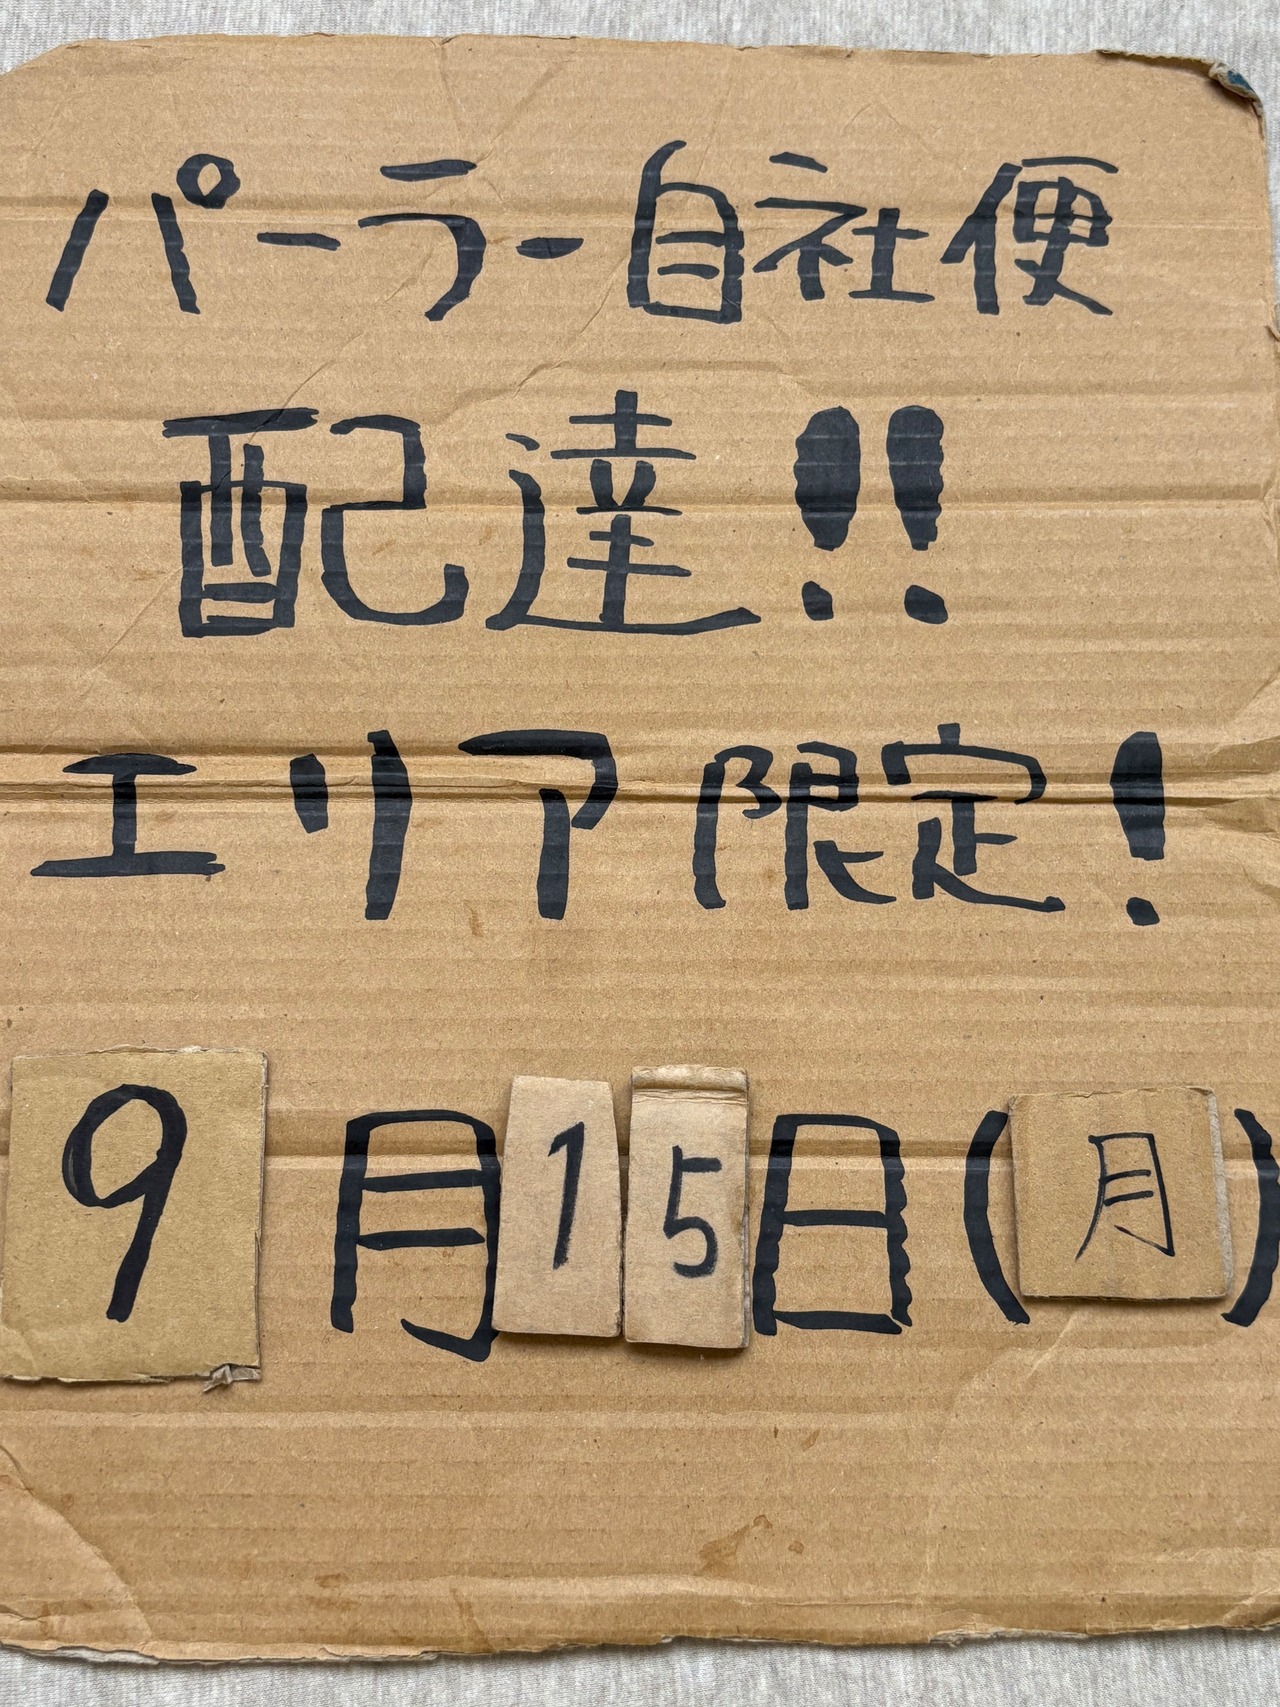 パーラー自社便
配達!!
エリア限定!
9月15日(月)